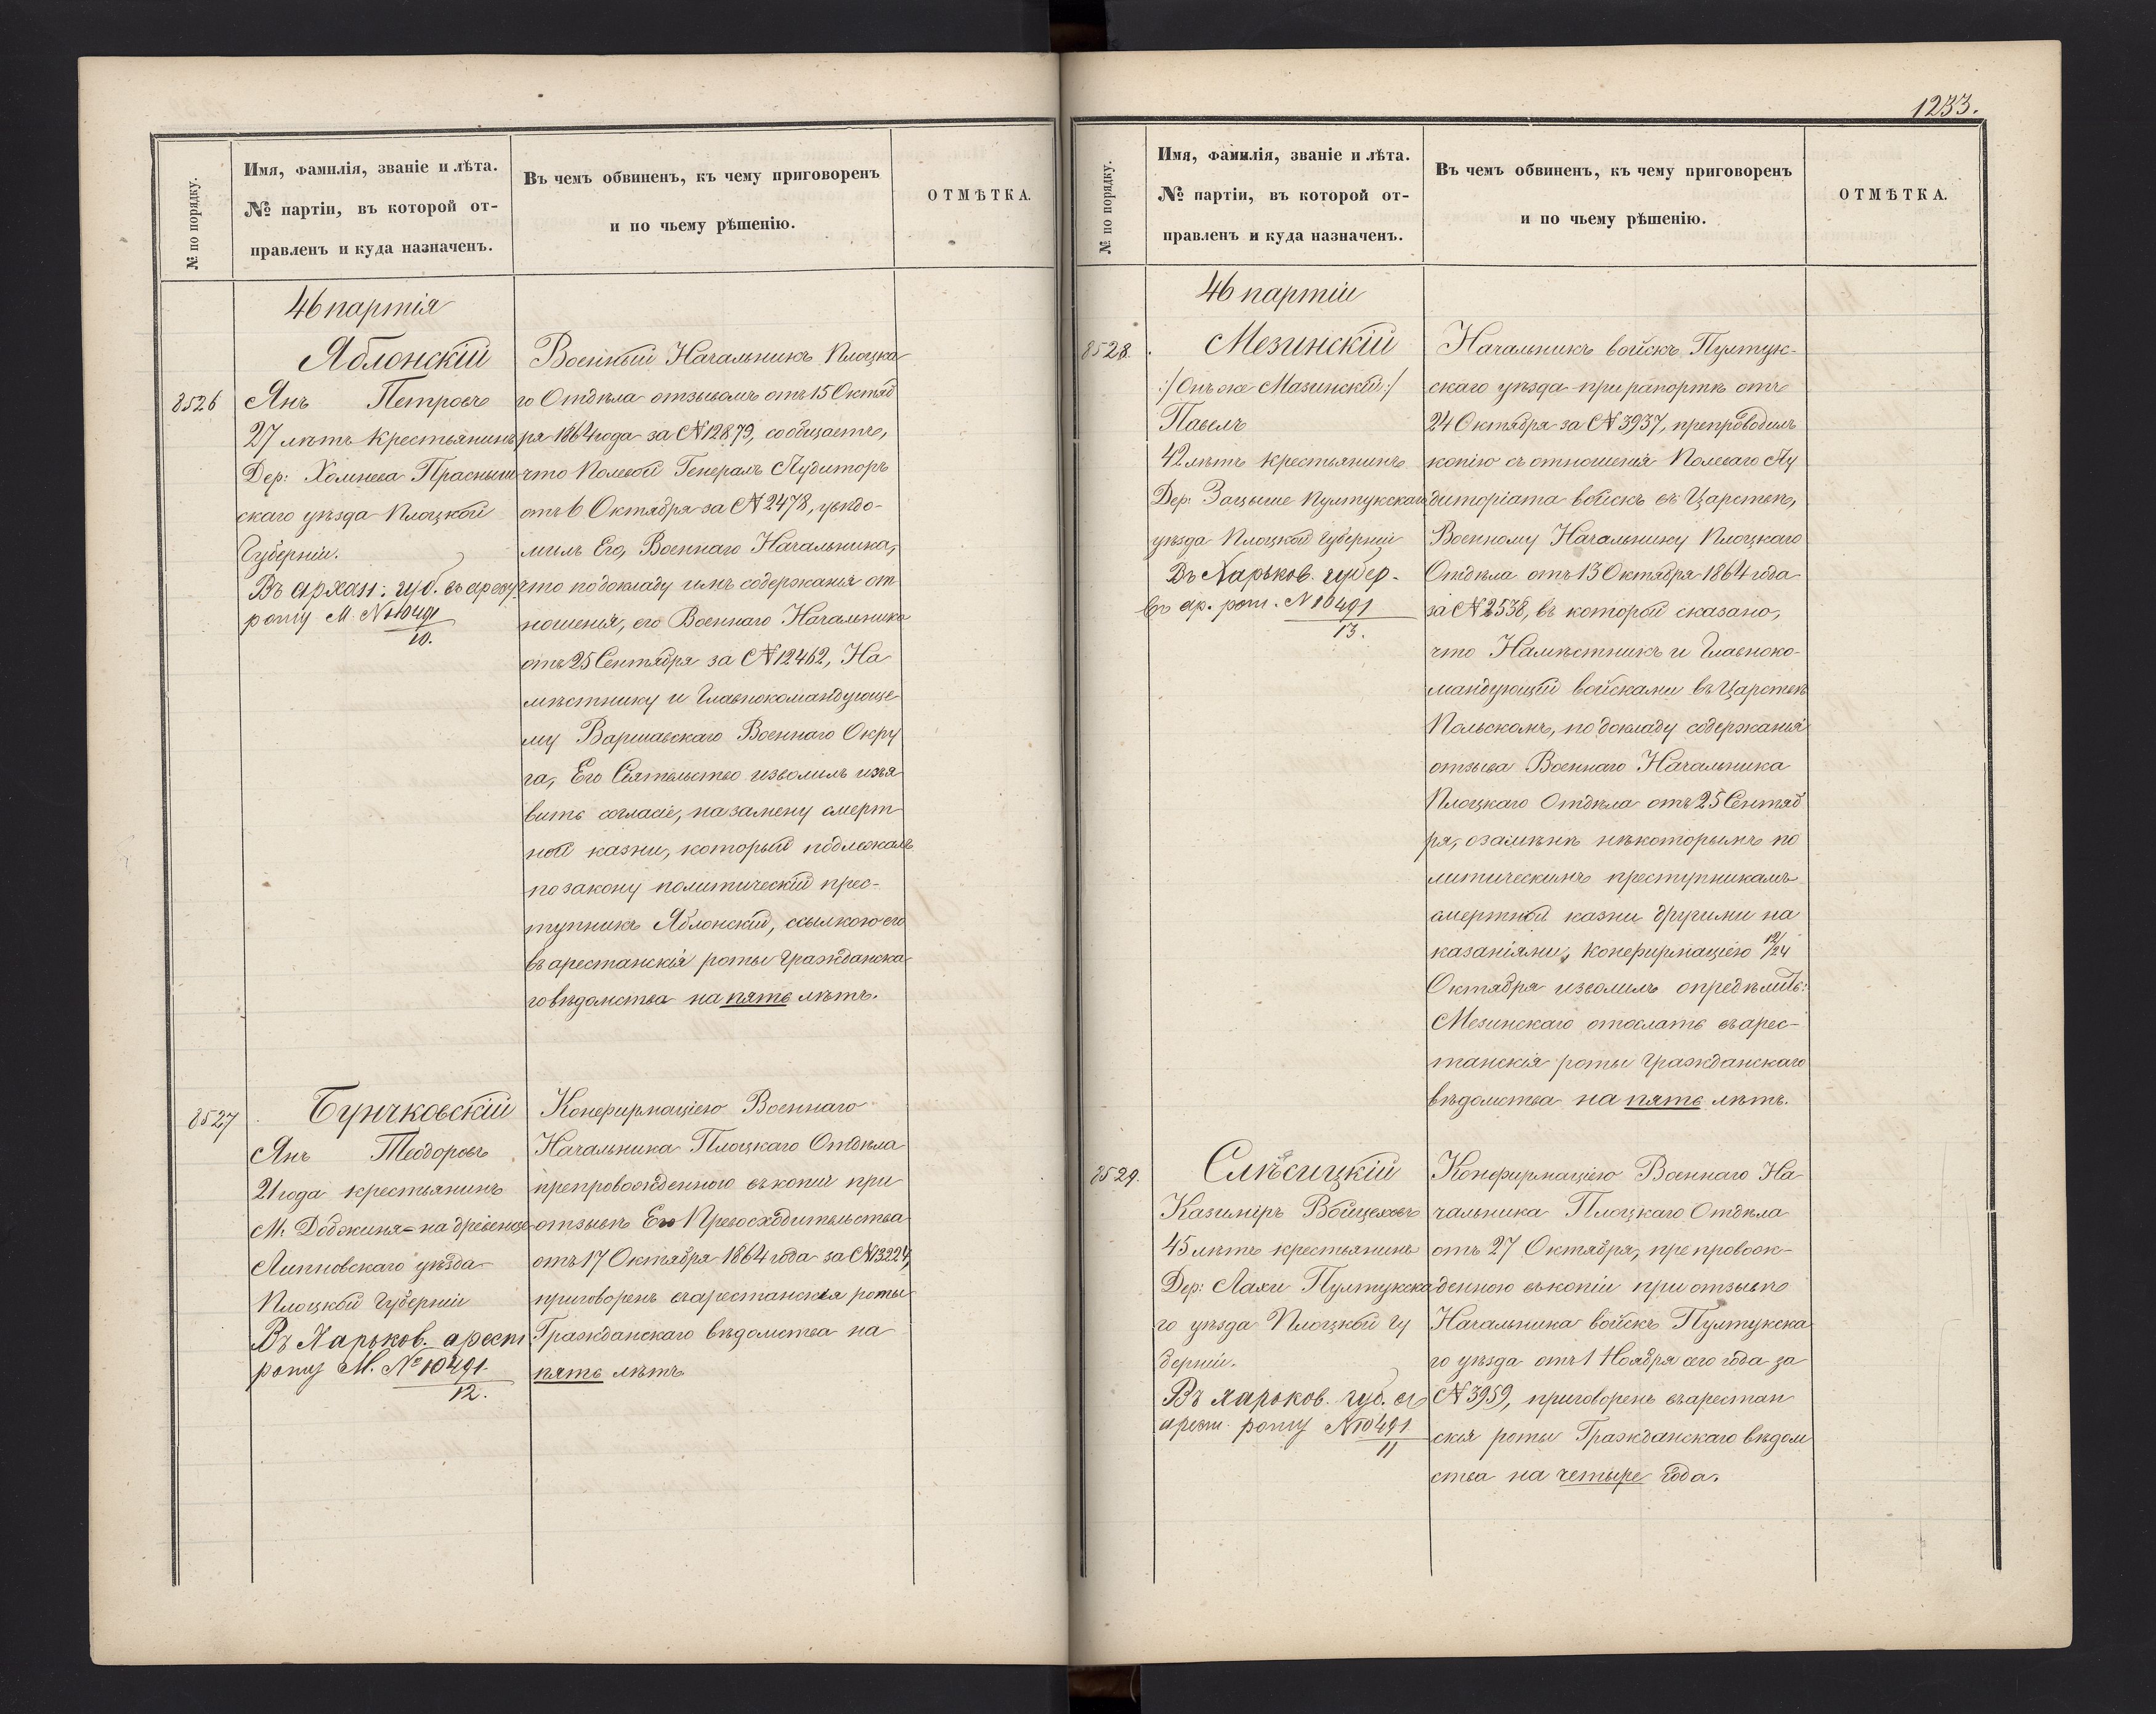 № по порядку.
Имя, фамилія, званіе и лѣта.
№ партіи, въ которой от-
правленъ и куда назначенъ.
Въ чемъ обвиненъ, къ чему приговоренъ
и по чьему рѣшенію.
ОТМѢТКА.
46 партія
8526
Яблонскій
Янъ Петровъ
27 лѣтъ крестьянинъ
Дер: Хоинева Прасныш
скаго уѣзда Плоцкой
Губерніи.
Въ архан: губ. въ арест
роту М. № 10491
10.
Военный Начальникъ Плоцка
го Отдѣла отзывомъ отъ 15 Октяб
ря 1864 года за № 12879, сообщаетъ,
что Полевой Генералъ Аудиторъ
отъ 6 Октября за № 2478, увѣдо-
милъ Его, Военнаго Начальника,
что по докладу имъ содержанія от
ношенія, его Военнаго Начальника
отъ 25 Сентября за № 12462, На
мѣстнику и Главнокомандующе
му Варшавскаго Военнаго Окру
га, Его Сіятельство изволилъ изъя
вить согласіе, на замену смерт
ной казни, который подлежалъ
по закону политическій прес-
тупникъ Яблонскій, ссылкою его
въ арестанскія роты Гражданска
го вѣдомства на пять лѣтъ.
8527
Бунчковскій
Янъ Теодоровъ
21 года крестьянинъ
М. Добжиня-на дрвенце
Липновскаго уѣзда
Плоцкой Губерніи
Въ Харьков. арест
роту М. № 10491.
12.
Конфирмаціею Военнаго
Начальника Плоцкаго Отдѣла
препровожденною въ копіи при
отзывѣ Его Превосходительства
отъ 17 Октября 1864 года за № 13224,
приговоренъ въ арестанскія роты
Гражданскаго вѣдомства на
пять лѣтъ
1233.
№ по порядку.
Имя, фамилія, званіе и лѣта.
№ партіи, въ которой от-
правленъ и куда назначенъ.
Въ чемъ обвиненъ, къ чему приговоренъ
и по чьему рѣшенію.
ОТМѢТКА.
46 партіи
8528.
Мезинскій
:/Онъ же Мазинскій:/
Павелъ
42 лѣтъ крестьянинъ
Дер: Зацыше Пултукскаго
уѣзда Плоцкой Губерніи
Въ Харьков. губер.
въ ар. рот. № 10491
13.
Начальникъ войскъ Пултук-
скаго уѣзда при рапортѣ отъ
24 Октября за № 3937, препроводилъ
копію съ отношенія Полеваго Ау
диторіата войскъ въ Царствѣ,
Военному Начальнику Плоцкаго
Отдѣла отъ 13 Октября 1864 года
за № 2538, въ которой сказано,
что Намѣстникъ и Главноко-
мандующій войсками въ Царствѣ
Польскомъ, по докладу содержанія
отзыва Военнаго Начальника
Плоцкаго Отдѣла отъ 25 Сентяб
ря, о замѣнѣ нѣкоторымъ по
литическимъ преступникамъ
смертной казни другими на
казаніями, конфирмаціею 12/24
Октября изволилъ опредѣлить:
Мезинскаго отослать въ арес-
танскія роты Гражданскаго
вѣдомства на пять лѣтъ.
8529.
Слѣсицкій
Казиміръ Войцеховъ
45 лѣтъ крестьянинъ
Дер: Лахи Пултукска
го уѣзда Плоцкой Гу
берніи.
Въ харьков. губ. въ
арест. роту № 10491
11
Конфирмаціею Военнаго На
чальника Плоцкаго Отдѣла
отъ 27 Октября, препровож-
денною въ копіи при отзывѣ
Начальника войскъ Пултукска
го уѣзда отъ 1 Ноября сего года за
№ 3959, приговоренъ въ арестан
скія роты Гражданскаго вѣдом
ства на четыре года.